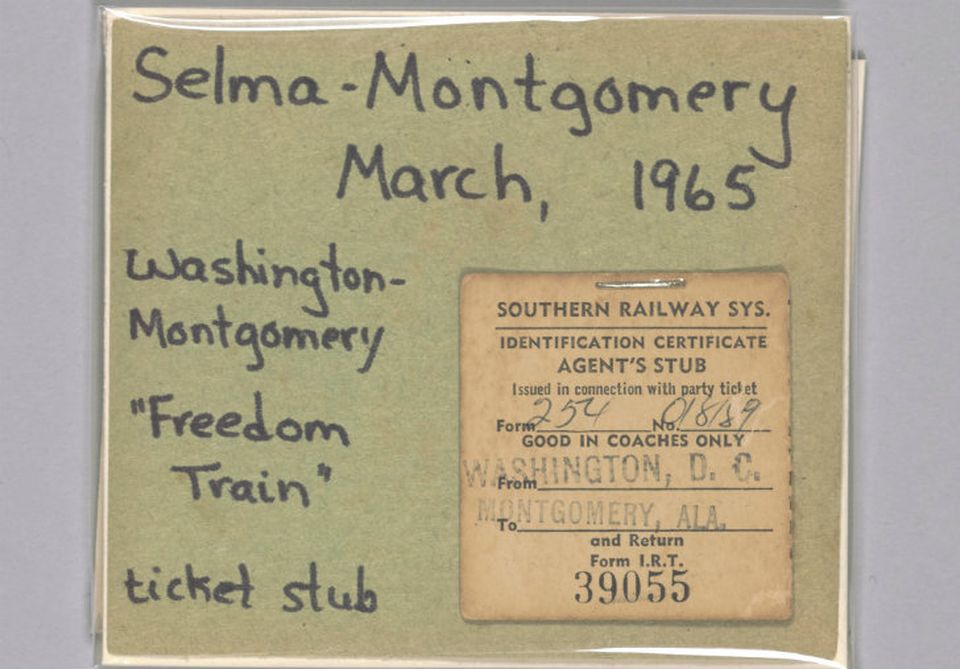 Selma-Montgomery
March, 1965
Washington-
Montgomery
"Freedom
Train"
ticket stub
SOUTHERN RAILWAY SYS.
IDENTIFICATION CERTIFICATE
AGENT'S STUB
Issued in connection with party ticket
Form 254 No. 018189
GOOD IN COACHES ONLY
From WASHINGTON, D. C.
To MONTGOMERY, ALA.
and Return
Form I.R.T.
39055